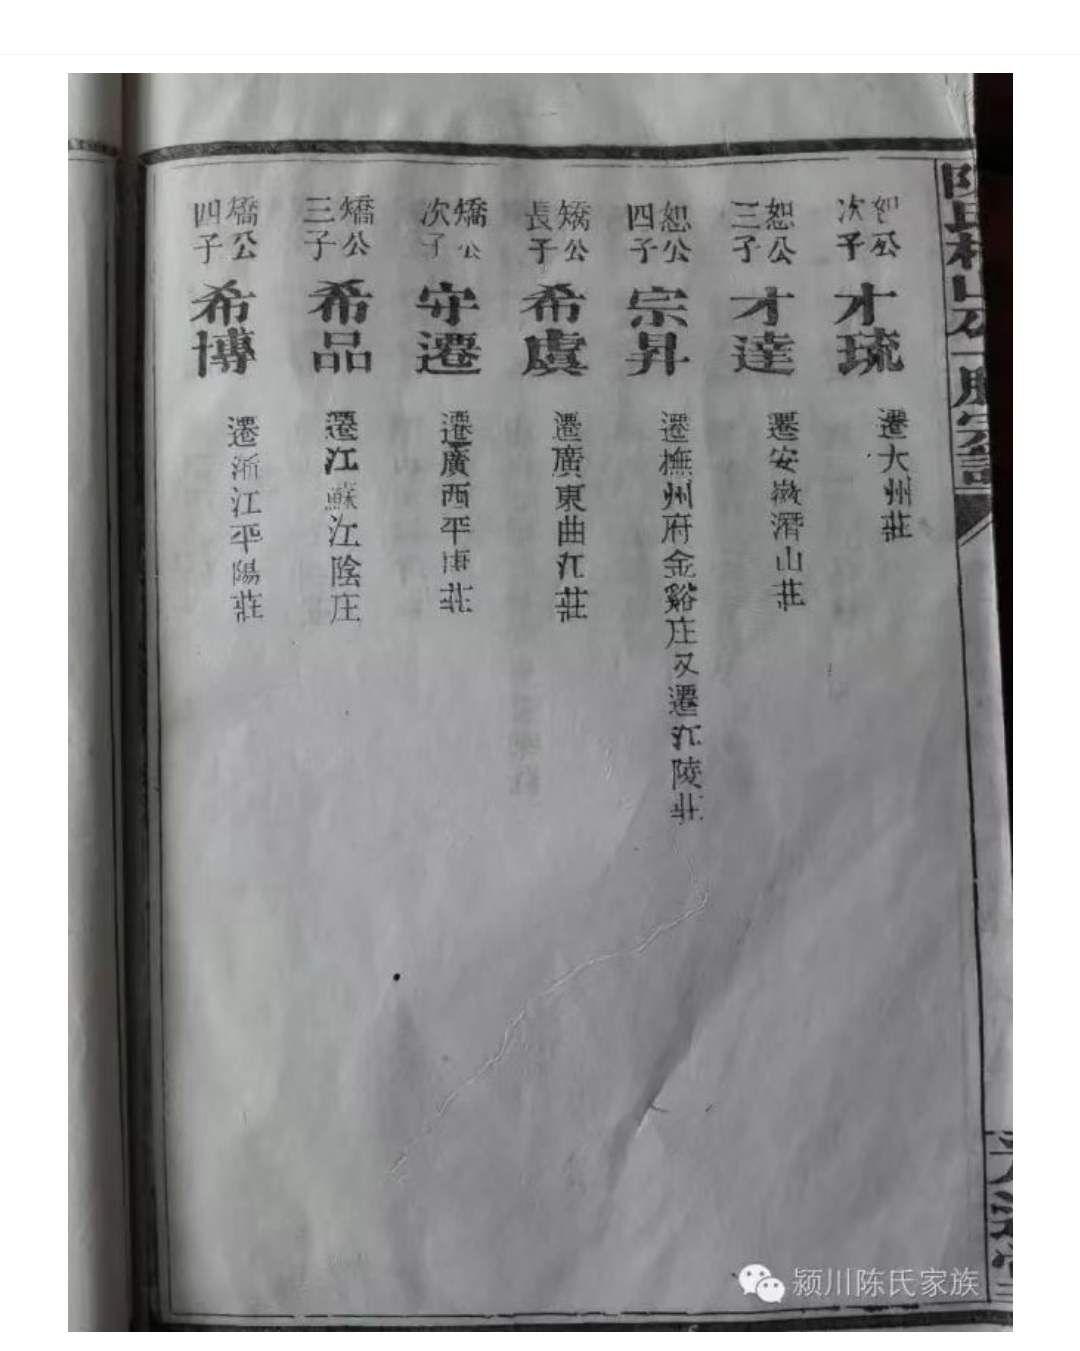 恕公
次子
才琉
遷大州莊
恕公
三子
才達
遷安徽潛山莊
恕公
四子
宗昇
遷撫州府金谿庄又遷江陵莊
矯公
長子
希虞
遷廣東曲江莊
矯公
次子
守遷
遷廣西平南莊
矯公
三子
希品
遷江蘇江陰庄
矯公
四子
希博
遷浙江平陽莊
颍川陈氏家族